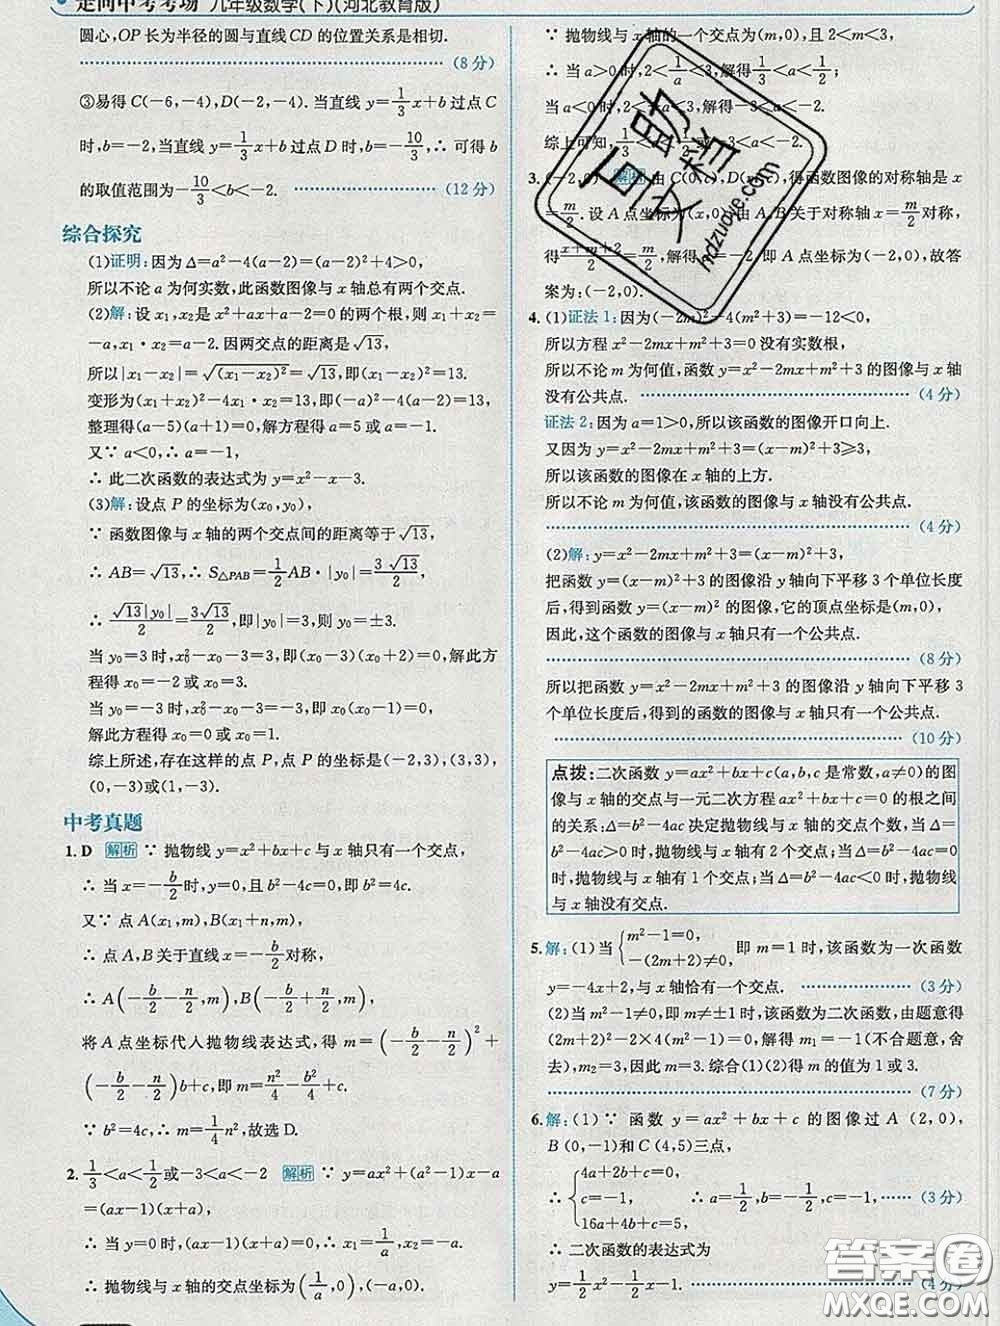 走向中考考场 九年级数学(下)(河北教育版)
圆心,OP长为半径的圆与直线CD的位置关系是相切.
(8分)
③易得C(-6,-4),D(-2,-4).当直线y=1/3x+b过点C
时,b=-2,当直线y=1/3x+b过点D时,b=-10/3,∴可得b
的取值范围为-10/3<b<-2. (12分)
综合探究
(1)证明:因为Δ=a²-4(a-2)=(a-2)²+4>0,
所以不论a为何实数,此函数图像与x轴总有两个交点.
(2)解:设x₁,x₂是x²+ax+a-2=0的两个根,则x₁+x₂=
-a,x₁·x₂=a-2.因两交点的距离是√13,
所以|x₁-x₂|=√(x₁-x₂)²=√13,即(x₁-x₂)²=13.
变形为(x₁+x₂)²-4x₁·x₂=13,即(-a)²-4(a-2)=13,
整理得(a-5)(a+1)=0,解方程得a=5或a=-1.
又∵a<0,∴a=-1,
∴此二次函数的表达式为y=x²-x-3.
(3)解:设点P的坐标为(x₀,y₀),
∵函数图像与x轴的两个交点间的距离等于√13,
∴AB=√13,∴S△PAB=1/2AB·|y₀|=3√13/2,
∴√13|y₀|/2=3√13/2,即|y₀|=3,则y₀=±3.
当y₀=3时,x₀²-x₀-3=3,即(x₀-3)(x₀+2)=0,解此方
程得x₀=-2或x₀=3.
当y₀=-3时,x₀²-x₀-3=-3,即x₀(x₀-1)=0,
解此方程得x₀=0或x₀=1.
综上所述,存在这样的点P,点P的坐标是(-2,3),(3,3),
(0,-3)或(1,-3).
中考真题
1.D 解析 ∵抛物线y=x²+bx+c与x轴只有一个交点,
∴当x=-b/2时,y=0,且b²-4c=0,即b²=4c.
又∵点A(x₁,m),B(x₁+n,m),
∴点A,B关于直线x=-b/2对称,
∴A(-b/2-n/2,m),B(-b/2+n/2,m),
将A点坐标代入抛物线表达式,得m=(-b/2-n/2)²+
(-b/2-n/2)b+c,即m=n²/4-b²/4+c.
∵b²=4c,∴m=1/4n²,故选D.
2.1/3<a<1/2或-3<a<-2 解析 ∵y=ax²+(a²-1)x-a
=(ax-1)(x+a),
∴当y=0时,(ax-1)(x+a)=0,∴x₁=1/a,x₂=-a.
∴抛物线与x轴的交点坐标为(1/a,0),(-a,0).
∵抛物线与x轴的一个交点为(m,0),且2<m<3,
∴当a>0时,2<1/a<3,解得1/3<a<1/2;
当a<0时,2<-a<3,解得-3<a<-2.
综上可知,1/3<a<1/2或-3<a<-2.
3.(-2,0) 解析 由C(0,c),D(m,c),得函数图像的对称轴是x
=m/2.设A点坐标为(x,0),由A,B关于对称轴x=m/2对称,
得(x+m+2)/2=m/2,解得x=-2,即A点坐标为(-2,0),故答
案为:(-2,0).
4.(1)证法1:因为(-2m)²-4(m²+3)=-12<0,
所以方程x²-2mx+m²+3=0没有实数根,
所以不论m为何值,函数y=x²-2mx+m²+3的图像与x轴
没有公共点. (4分)
证法2:因为a=1>0,所以该函数的图像开口向上.
又因为y=x²-2mx+m²+3=(x-m)²+3≥3,
所以该函数的图像在x轴的上方.
所以不论m为何值,该函数的图像与x轴没有公共点.
(4分)
(2)解:y=x²-2mx+m²+3=(x-m)²+3,
把函数y=(x-m)²+3的图像沿y轴向下平移3个单位长度
后,得到函数y=(x-m)²的图像,它的顶点坐标是(m,0),
因此,这个函数的图像与x轴只有一个公共点.
(8分)
所以把函数y=x²-2mx+m²+3的图像沿y轴向下平移3
个单位长度后,得到的函数的图像与x轴只有一个公共点.
(10分)
点拨:二次函数y=ax²+bx+c(a,b,c是常数,a≠0)的图
像与x轴的交点与一元二次方程ax²+bx+c=0的根之间
的关系:Δ=b²-4ac决定抛物线与x轴的交点个数,当Δ=
b²-4ac>0时,抛物线与x轴有2个交点;当Δ=b²-4ac=0时,
抛物线与x轴有1个交点;当Δ=b²-4ac<0时,抛物线
与x轴没有交点.
5.解:(1)当{m²-1=0, -(2m+2)≠0,即m=1时,该函数为一次函数
y=-4x+2,与x轴恰有一个交点. (3分)
(2)当m²-1≠0,即m≠±1时,该函数为二次函数,由题意得
(2m+2)²-2×4(m²-1)=0,解得m₁=-1(不合题意,舍
去),m₂=3.综合(1)(2)可知m的值为1或3.
(7分)
6.解:(1)∵函数y=ax²+bx+c的图像过A(2,0),
B(0,-1)和C(4,5)三点,
∴{4a+2b+c=0, c=-1, 16a+4b+c=5, ∴a=1/2,b=-1/2,c=-1. (3分)
∴二次函数的表达式为
y=1/2x²-1/2x-1. (4分)
百助文档
hdzuoye.com
答案圈
MXQE.COM